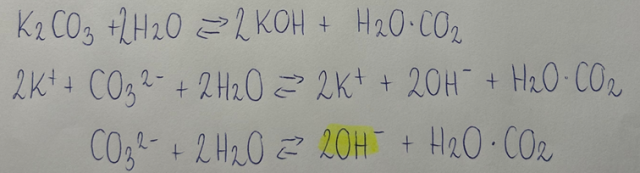 K₂CO₃ + 2H₂O ⇌ 2KOH + H₂O·CO₂
2K⁺ + CO₃²⁻ + 2H₂O ⇌ 2K⁺ + 2OH⁻ + H₂O·CO₂
CO₃²⁻ + 2H₂O ⇌ 2OH⁻ + H₂O·CO₂